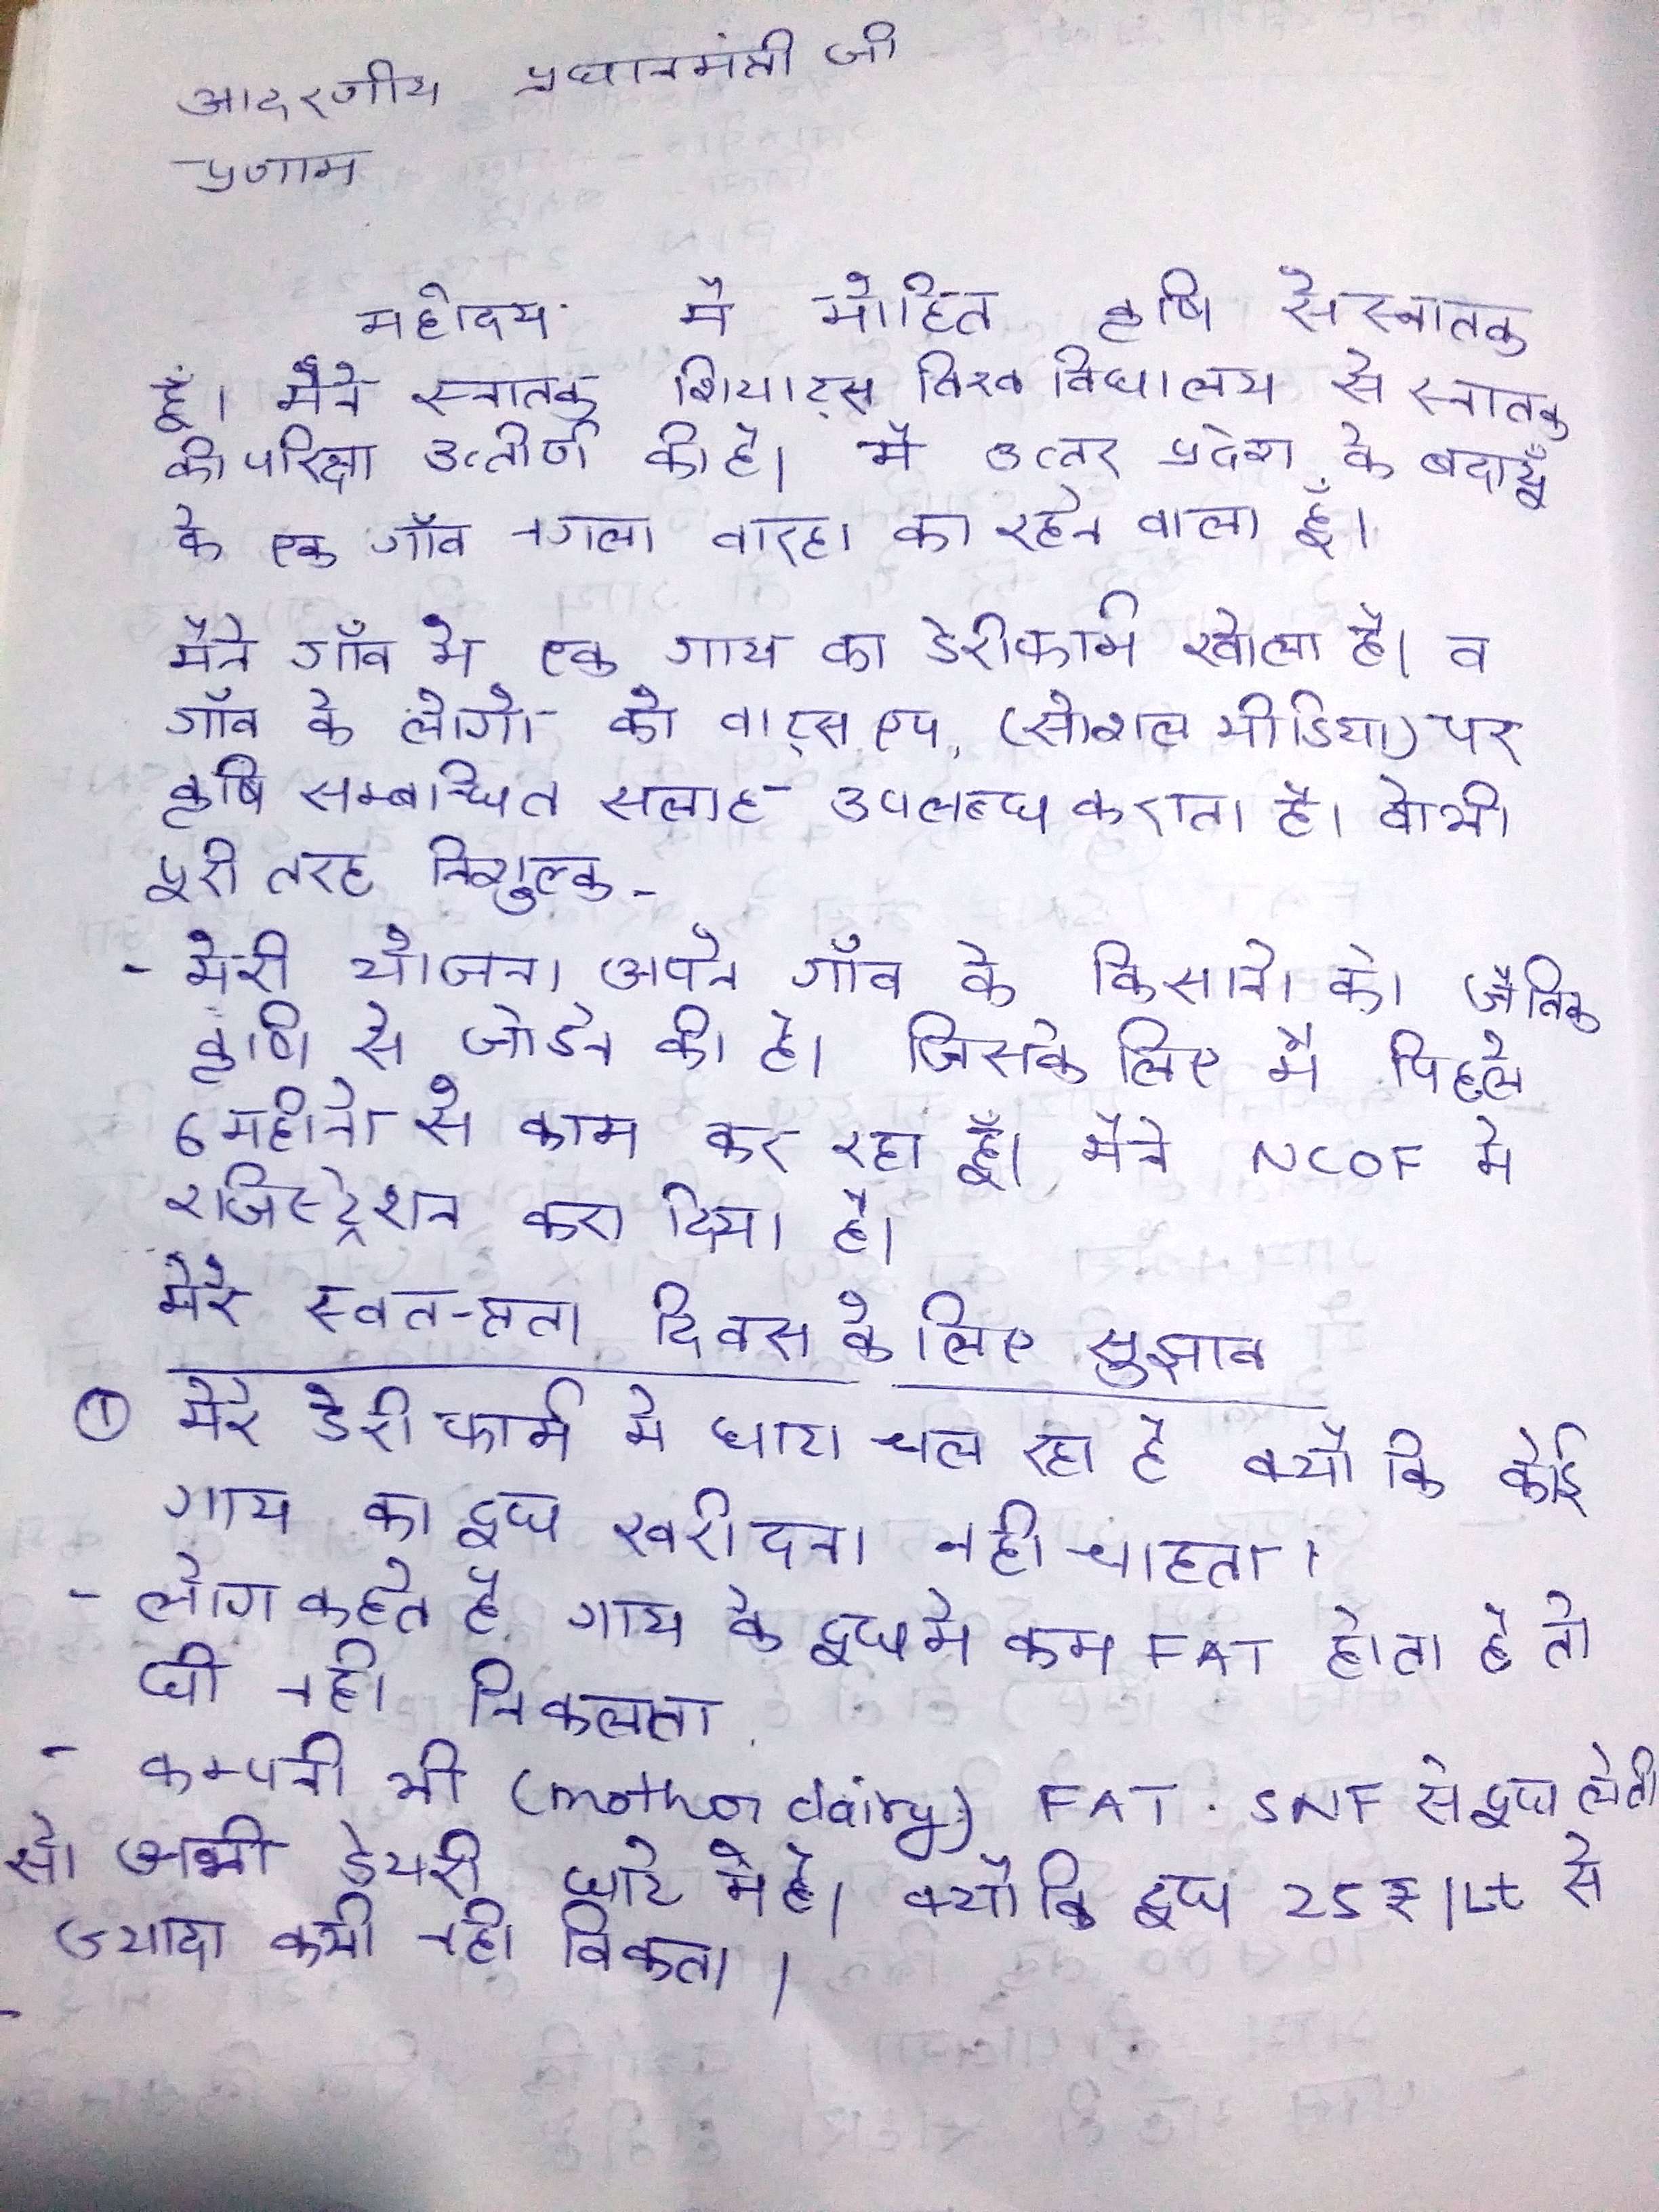 आदरणीय प्रधानमंत्री जी
प्रणाम
महोदय मै मोहित कृषि से स्नातक
हूँ। मैंने स्नातक शियाट्स विश्व विद्यालय से स्नातक
की परिक्षा उत्तीर्ण की है। मैं उत्तर प्रदेश के बदायूँ
के एक गाँव नगला वारहा का रहने वाला हूँ।
मैंने गाँव मे एक गाय का डेरी फार्म खोला है। व
गाँव के लोगो को वाट्स एप, (सोशल मीडिया) पर
कृषि सम्बन्धित सलाह उपलब्ध कराता है। वो भी
पूरी तरह निशुल्क-
- मेरी योजना अपने गाँव के किसानो को जैविक
कृषि से जोडने की है। जिसके लिए मै पिछले
6 महीनो से काम कर रहा हूँ। मैने NCOF मे
रजिस्ट्रेशन करा दिया है।
मेरे स्वतन्त्रता दिवस के लिए सुझाव
① मेरे डेरी फार्म मे घाटा चल रहा है क्यों कि कोई
गाय का दूध खरीदना नही चाहता।
- लोग कहते है गाय के दूध मे कम FAT होता है तो
घी नही निकलता
- कम्पनी भी (mother dairy) FAT. SNF से दूध लेती
सो अभी डेयरी घाटे मे है। क्यों कि दूध 25 ₹ / Lt से
ज्यादा कभी नही विकता।
-